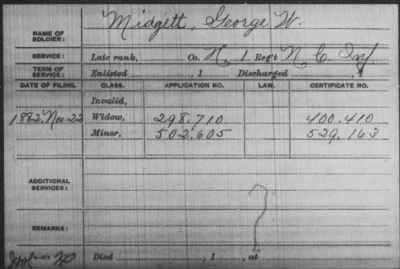 NAME OF SOLDIER: Midgett, George W.
SERVICE: Late rank, Co. H, 1 Reg't N. C. Inf.
TERM OF SERVICE: Enlisted , 1 Discharged , 1
DATE OF FILING. CLASS. APPLICATION NO. LAW. CERTIFICATE NO.
Invalid,
1882, Nov. 22 Widow, 298.710 400.410
Minor, 502.605 529.163
ADDITIONAL SERVICES:
REMARKS:
Died , 1 , at